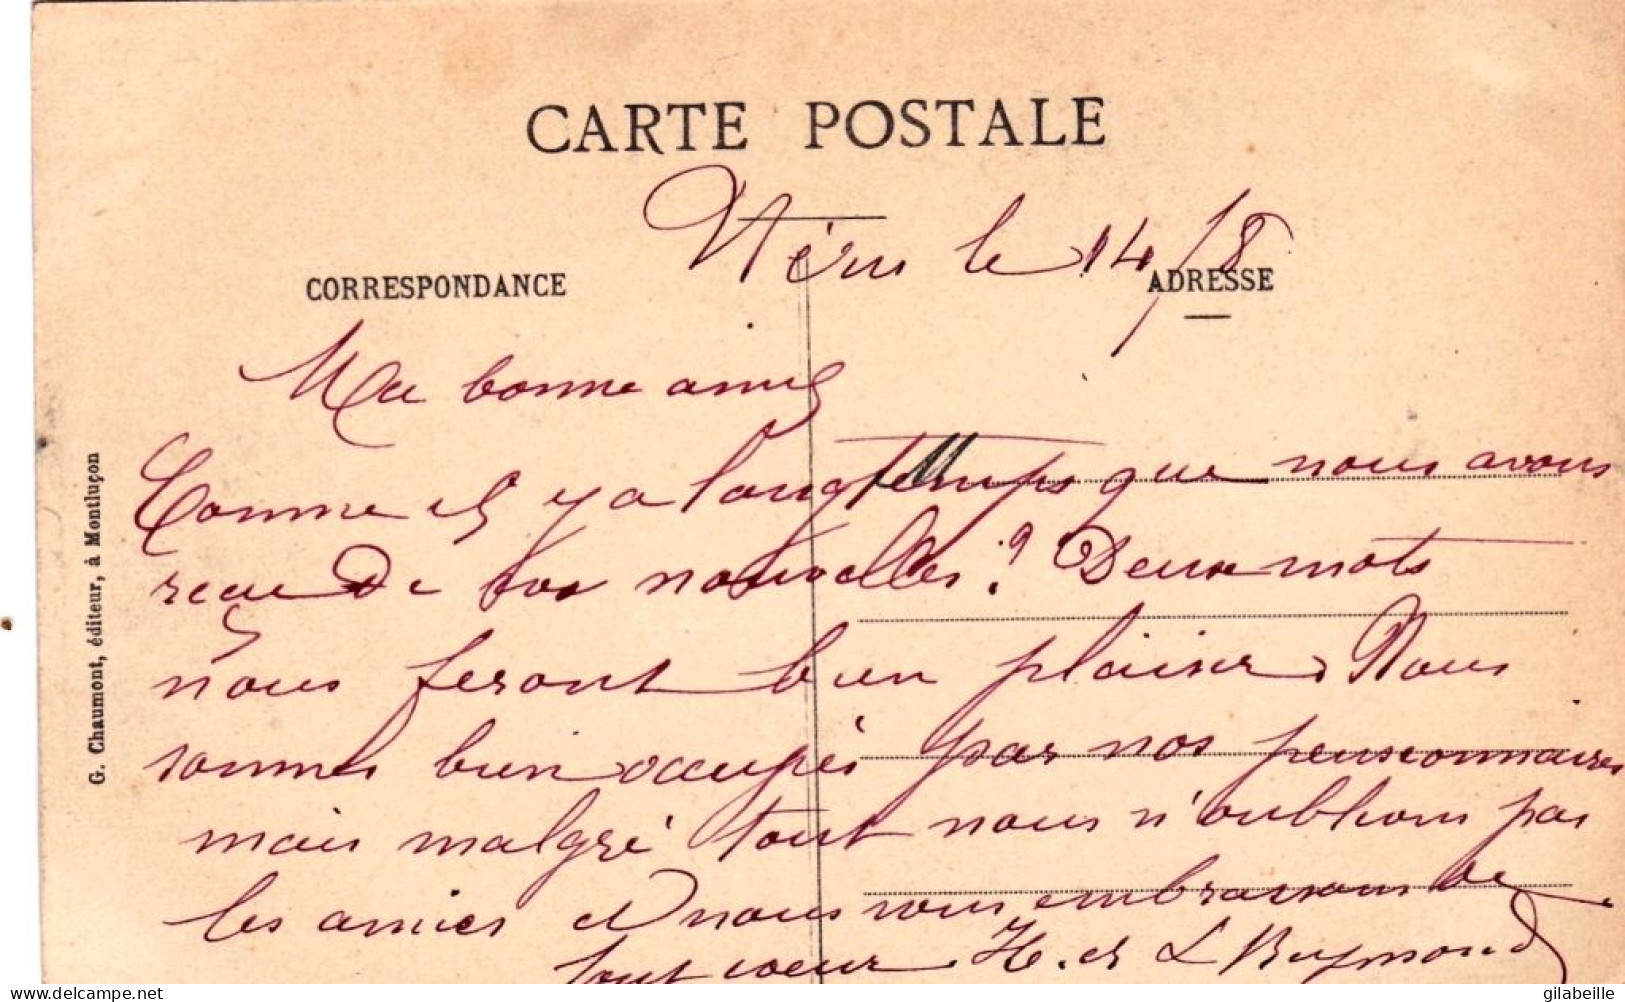 CARTE POSTALE
Néris le 14/8
CORRESPONDANCE
ADRESSE
Ma bonne amie
Comme il y a longtemps que nous avons
reçue de vos nouvelles? Deux mots
nous feront bien plaisir. Nous
sommes bien occupés par nos pensionnaires
mais malgré tout nous n'oublions pas
les amies et nous vous embrassons de
tout coeur. H. et L Raymond
G. Chaumont, éditeur, à Montluçon
delcampe.net
gilabeille